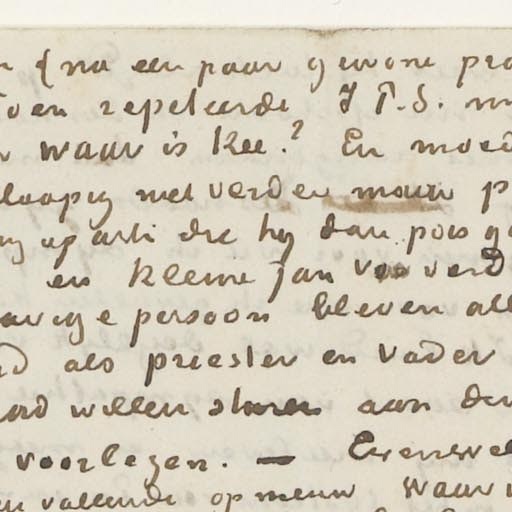 n (na een paar gewone pra
Toen repeteerde J P. S. m
r waar is Kee? En moed
loopig niet verder maar p
ing apart die hij dan pas g
en kleine Jan voo verd
overige persoon bleven all
d als priester en vader
ord willen sturen aan den
voorlezen. — Evenwel
en vallende op nieuw waar i